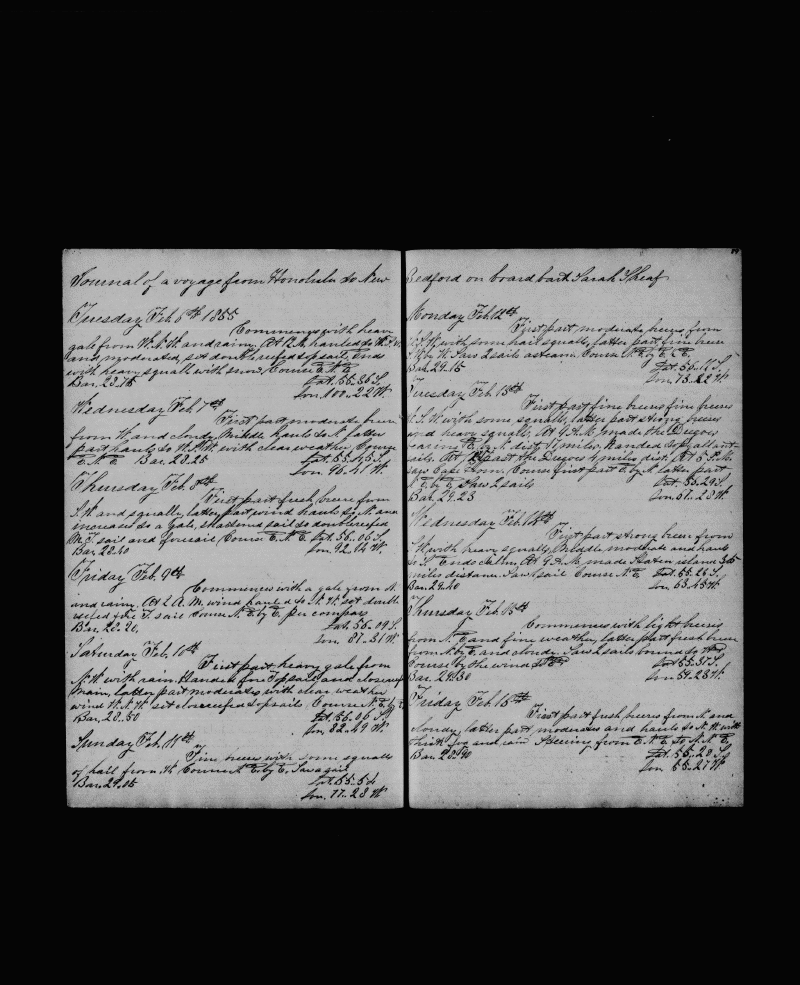 Journal of a voyage from Honolulu to New
Tuesday Feb. 6th 1855
Commences with heavy
gale from W.N.W. and rainy. At 12 M. hauled to W.S.W.
and moderated, set double reefed topsail. Ends
with heavy squall with snow. Course E.N.E.
Bar. 28.75 Lat. 55..36 S.
Lon. 100..22 W.
Wednesday Feb. 7th
First part moderate breeze
from W. and cloudy. Middle hauls to N. latter
part hauls to W.S.W. with clear weather. Course
E.N.E. Bar. 28.25 Lat. 55..45 S.
Lon. 96..41 W.
Thursday Feb. 8th
First part fresh breeze from
S.W. and squally, latter part wind hauls to N. and
increases to a gale, shortened sail to double reefed
M.T. sail and foresail. Course E.N.E. Lat. 56..06 S.
Bar. 28.40 Lon. 92..14 W.
Friday Feb. 9th
Commences with a gale from N.
and rain. At 2 A.M. wind hauled to N.W. set double
reefed fore T. sail Course N.E. by E. per compass
Bar. 28.20, Lat. 56..09 S.
Lon. 87..31 W.
Saturday Feb. 10th
First part heavy gale from
N.W. with rain. Handed fore Topsail and close reefed
main, latter part moderates with clear weather
wind W.N.W. set close reefed topsails. Course N.E. by E.
Bar. 28.50 Lat. 56..06 S.
Lon. 82..49 W.
Sunday Feb. 11th
Fine breeze with some squalls
of hail from W. Course N.E. by E. Saw a sail
Bar. 29.05 Lat. 55..54
Lon. 77..28 W.
Bedford on board bark Sarah Sheaf
Monday Feb. 12th
First part moderate breeze from
W.S.W. with some hail squalls, latter part fine breeze
S.W. by W. Saw 2 sails astern. Course N.E. by E. E.
Bar. 29.15 Lat. 56..11 S.
Lon. 73..22 W.
Tuesday Feb. 13th
First part fine breeze fine breeze
W.S.W. with some squalls, latter part strong breeze
and heavy squalls. At 9 A.M. made the Diegoes
bearing E. by N. dist. 17 miles. Handed topgallant
sails. At past the Diegoes 4 miles dist. At 5 P.M.
saw Cape Horn. Course first part E. by N. latter part
N.E. by E. Saw 2 sails Lat. 55..29 S.
Bar. 29.23 Lon. 67..20 W.
Wednesday Feb. 14th
First part strong breeze from
S.W. with heavy squalls, Middle moderate and hauls
to S. Ends calm. At 9 A.M. made Staten island 35
miles distance. Saw 1 sail Course N.E. Lat. 55..26 S.
Bar. 29.40 Lon. 63..45 W.
Thursday Feb. 15th
Commences with light breezes
from N.E. and fine weather, latter part fresh breeze
from N. by E. and cloudy. Saw 2 sails bound to
Course by the wind to Lat. 55..31 S.
Bar. 29.30 Lon. 59..28 W.
Friday Feb. 16th
First part fresh breeze from N. and
cloudy, latter part moderates and hauls to N.W. with
thick fog and rain. Steering from E.N.E. to N.N.E.
Bar. 28.90 Lat. 55..28 S.
Lon. 55..27 W.